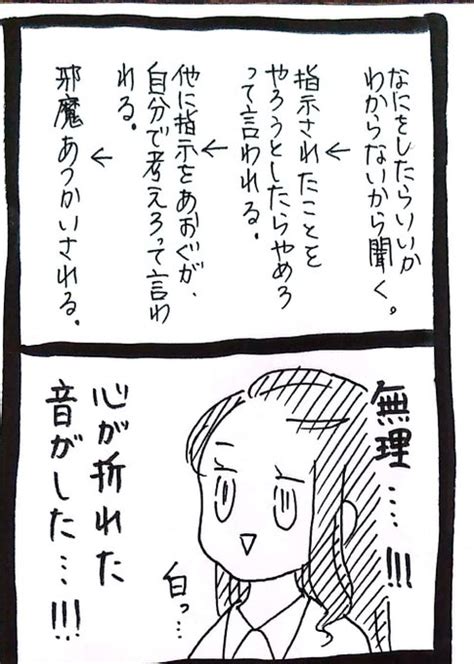 なにをしたらいいか
わからないから聞く。
↓
指示されたことを
やろうとしたらやめろ
って言われる。
↓
他に指示をあおぐが、
自分で考えろって言わ
れる。
↓
邪魔あつかいされる。
無理…!!!
心が折れた
音がした…!!!
白っ…